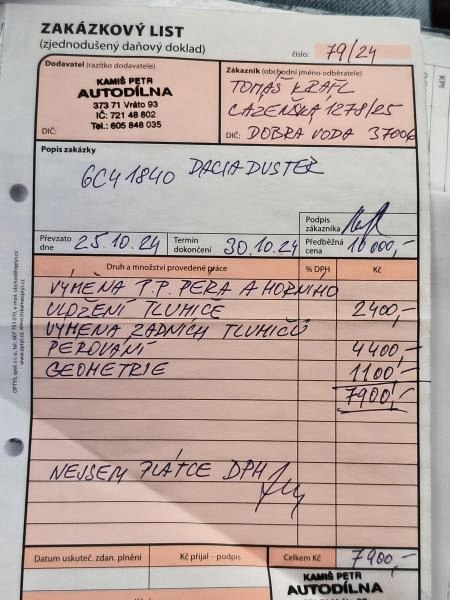 ZAKÁZKOVÝ LIST
(zjednodušený daňový doklad)
číslo: 79/24
Dodavatel (razítko dodavatele)
KAMIŠ PETR
AUTODÍLNA
373 71 Vráto 93
IČ: 721 48 802
Tel.: 605 848 035
DIČ:
Zákazník (obchodní jméno odběratele)
TOMÁŠ KRÁFL
LÁZENSKÁ 1278/25
DIČ: DOBRA VODA 37006
Popis zakázky
6C4 1840 DACIA DUSTER
Podpis zákazníka
Převzato dne 25.10.24
Termín dokončení 30.10.24
Předběžná cena 10 000,-
Druh a množství provedené práce % DPH Kč
VÝMĚNA P.P. PERA A HORNIHO
ULOŽENÍ TLUMIČE 2400,-
VÝMĚNA ZADNÍCH TLUMIČŮ
PEROVÁNÍ 4400,-
GEOMETRIE 1100,-
7900,-
NEJSEM PLÁTCE DPH
Datum uskuteč. zdan. plnění Kč přijal - podpis Celkem Kč 7900,-
KAMIŠ PETR
AUTODÍLNA